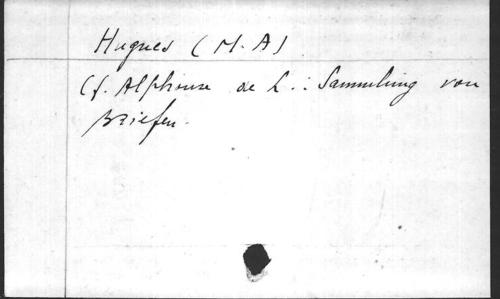 Hugues (M. A)
Cf. Alphonse de L.: Sammlung von
Briefen.